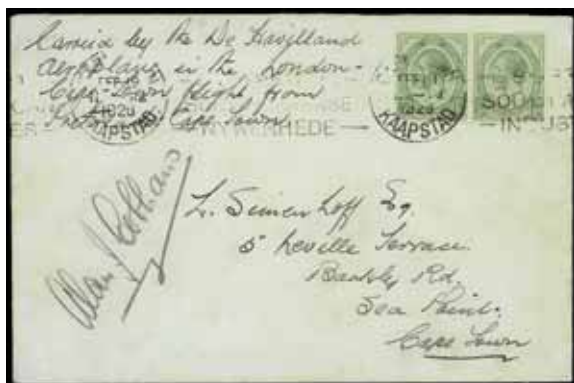 Carried by the De Havilland
Aeroplane in the London-
Cape Town flight from
Cape Town
KAAPSTAD
NYWERHEDE
KAAPSTAD
Alan J Cobham
L. Simenhoff Esq.
5 Neville Terrace
Rd.
Sea Point.
Cape Town